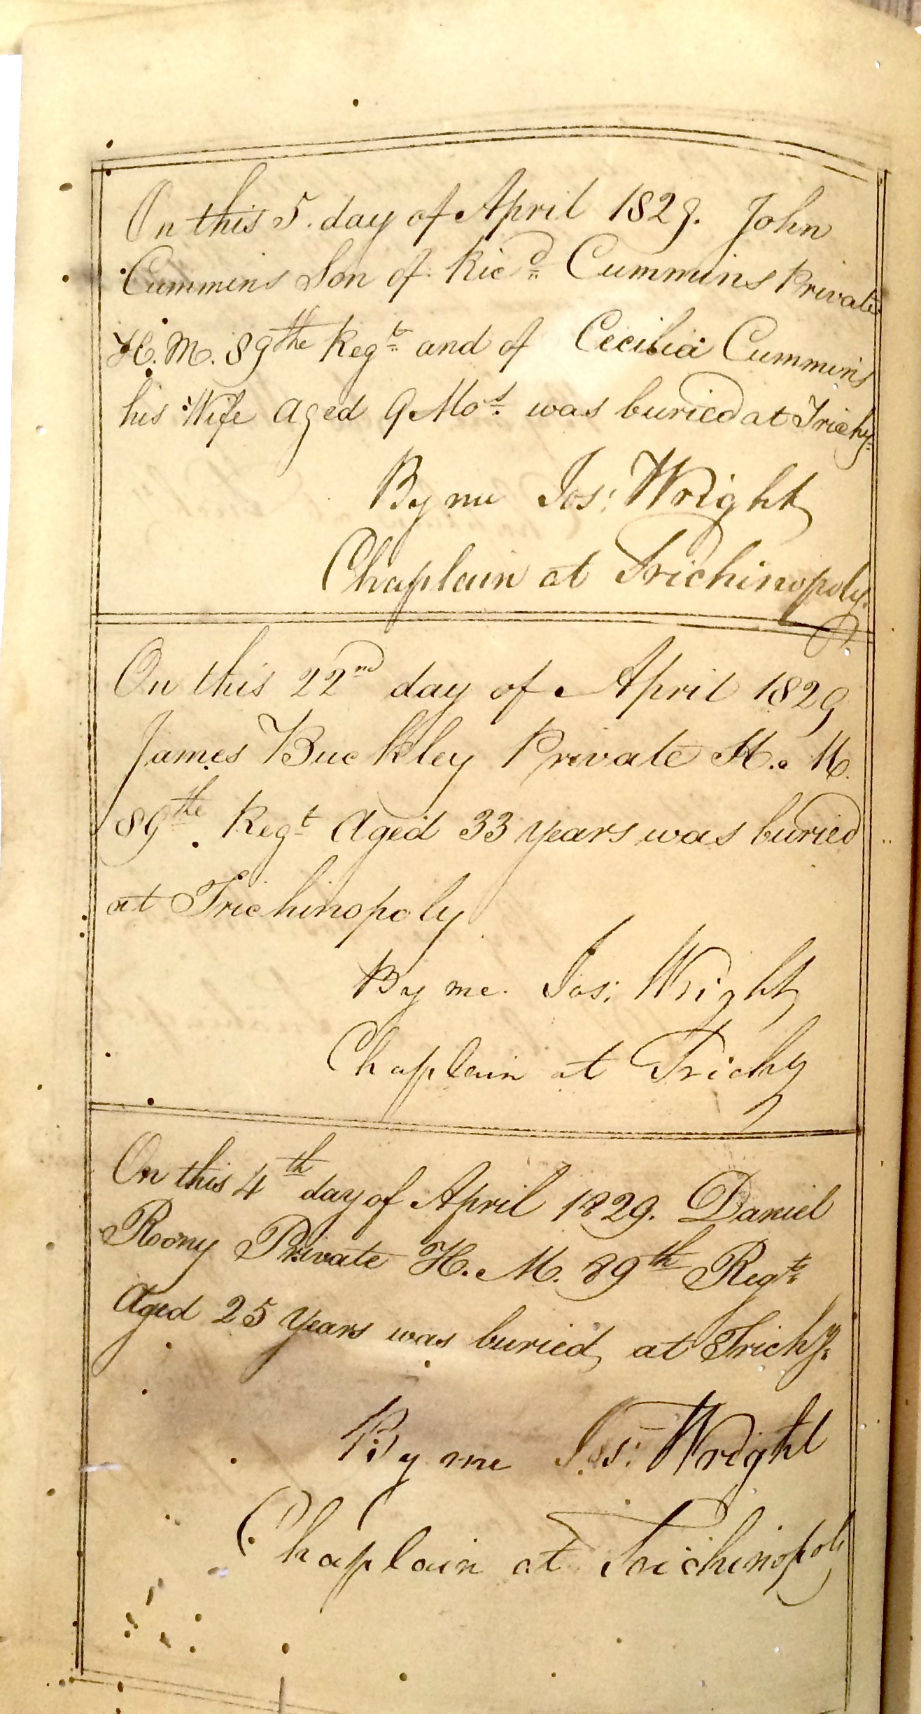 On this 5. day of April 1829. John
Cummins Son of Ric.d Cummins Private
H. M. 89the Regt. and of Cecilia Cummins
his Wife Aged 9 Mos. was buried at Trichy.
By me Jos: Wright
Chaplain at Trichinopoly.
On this 22nd day of April 1829
James Buckley Private H. M.
89the Regt Aged 33 years was buried
at Trichinopoly
By me. Jos: Wright
Chaplain at Trichy
On this 4th day of April 1829. Daniel
Rony Private H. M. 89th Regt.
Aged 25 Years was buried, at Trichy.
By me Jos: Wright
Chaplain at Trichinopoly